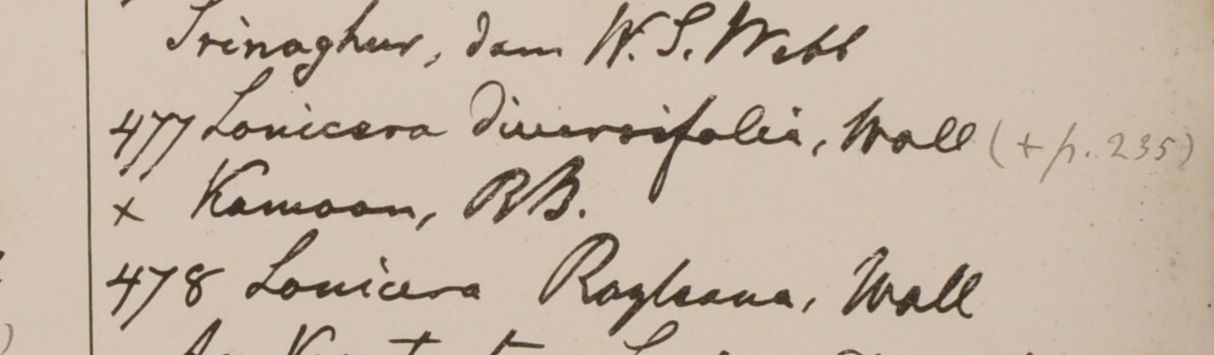 Srinaghur, dam W.S. Webb
477 Lonicera diversifolia, Wall (+ p. 235)
x Kamoon, RB.
478 Lonicera Royleana, Wall